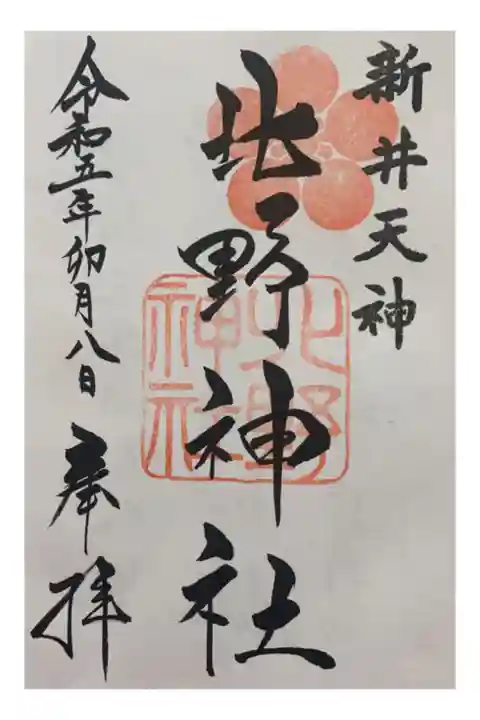 新井天神
北野神社
北野
神社
令和五年卯月八日
奉拝